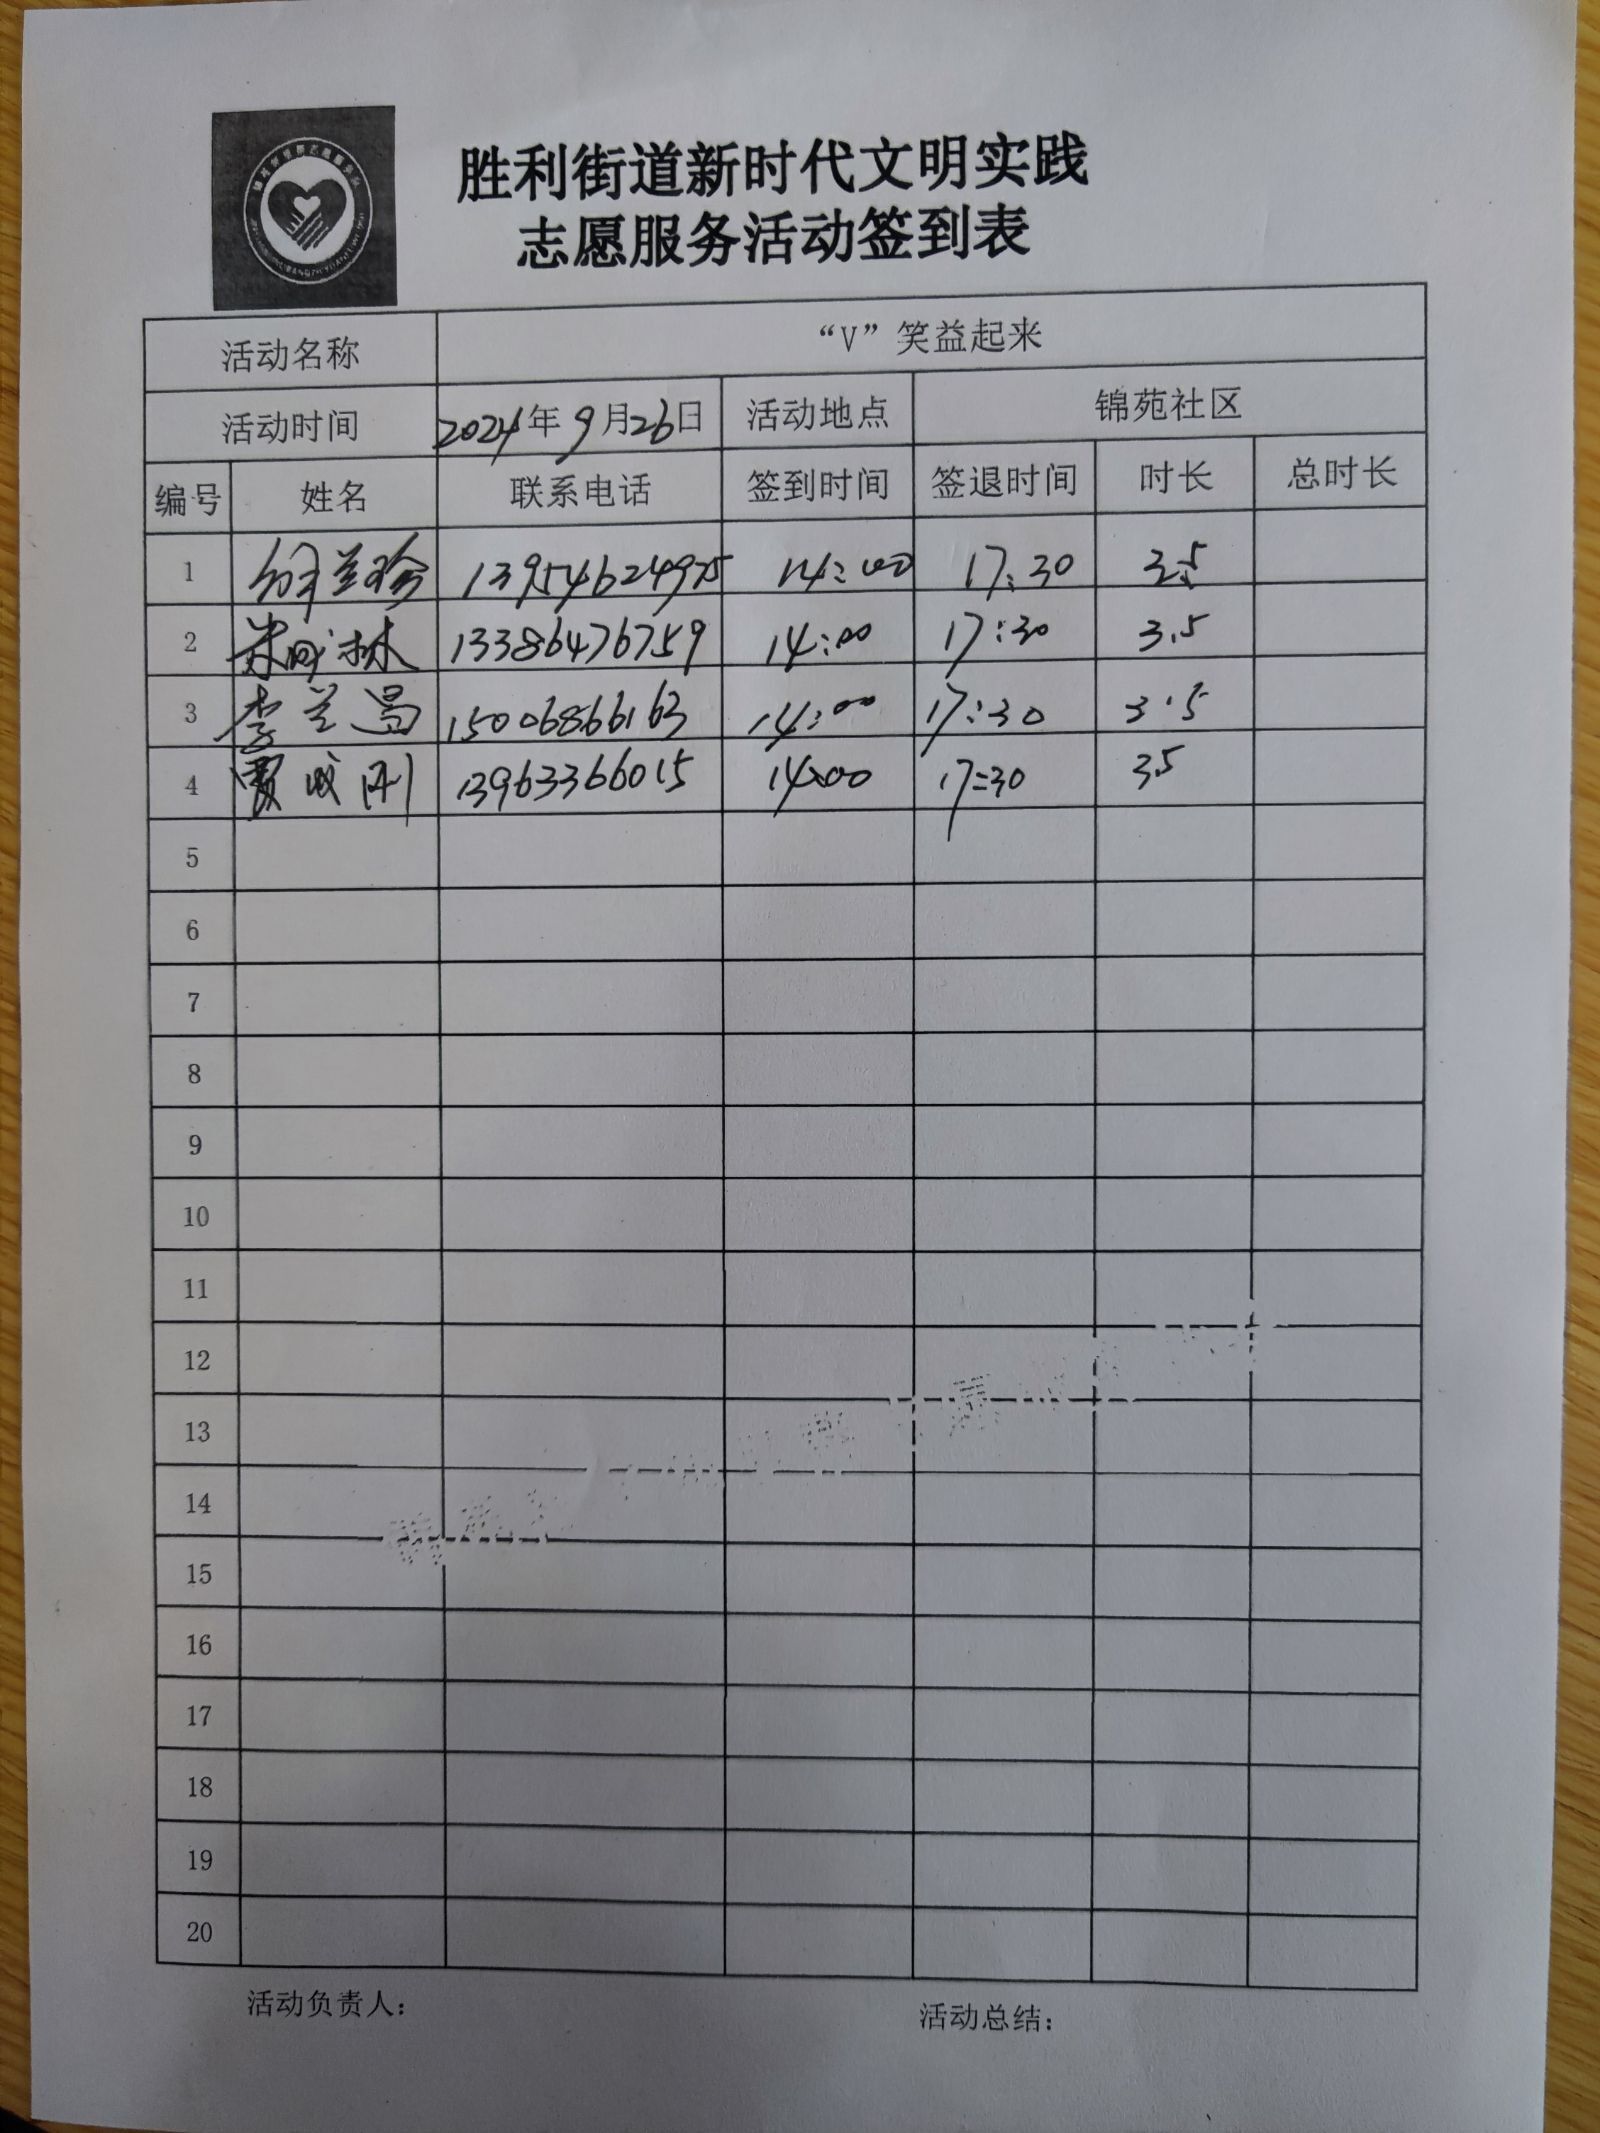 胜利街道新时代文明实践
志愿服务活动签到表
活动名称 “V”笑益起来
活动时间 2024年9月26日 活动地点 锦苑社区
编号 姓名 联系电话 签到时间 签退时间 时长 总时长
1 13954624975 14:00 17:30 3.5
2 13386476759 14:00 17:30 3.5
3 李兰昌 15006866163 14:00 17:30 3.5
4 贾成刚 13963366015 14:00 17:30 3.5
5
6
7
8
9
10
11
12
13
14
15
16
17
18
19
20
活动负责人： 活动总结：